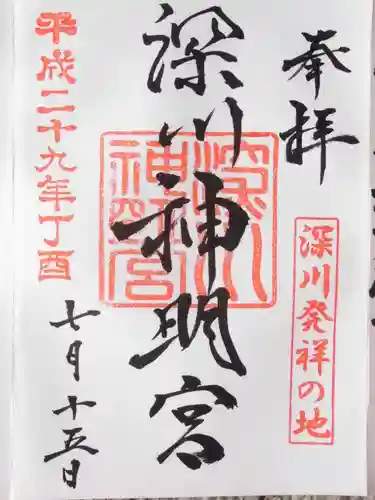 奉拝
深川発祥の地
深川神明宮
深川神明宮
平成二十九年丁酉
七月十五日